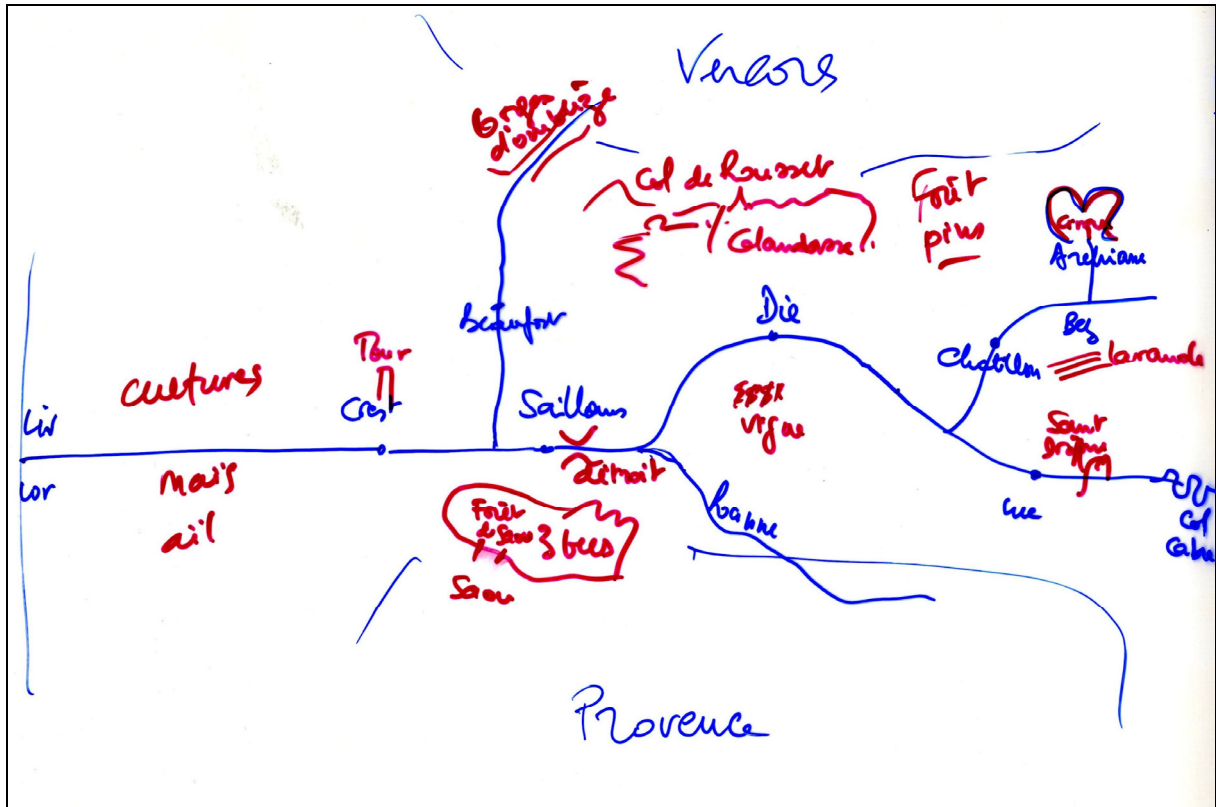 Vercors
Gorges
d'omblèze
Col de Rousset
Glandasse
Forêt
pins
cirque
Archiane
Beaufort
Die
Bez
Chatillon
lavande
Tour
Crest
cultures
Saillans
vigne
Saint
Liv
Lor
détroit
maïs
ail
Forêt
de Saou
3 becs
Roanne
Luc
Col
Saou
Provence